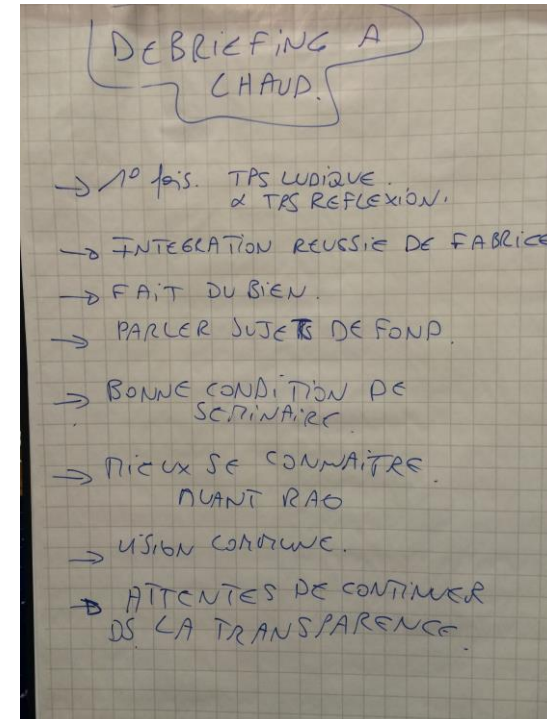 DEBRIEFING A
CHAUD.
→ 1° fois. TPS LUDIQUE.
& TPS REFLEXION.
→ INTEGRATION REUSSIE DE FABRICE
→ FAIT DU BIEN.
→ PARLER SUJETS DE FOND.
→ BONNE CONDITION DE
SEMINAIRE
→ MIEUX SE CONNAITRE.
AVANT
→ VISION COMMUNE.
→ ATTENTES DE CONTINUER
DS LA TRANSPARENCE.